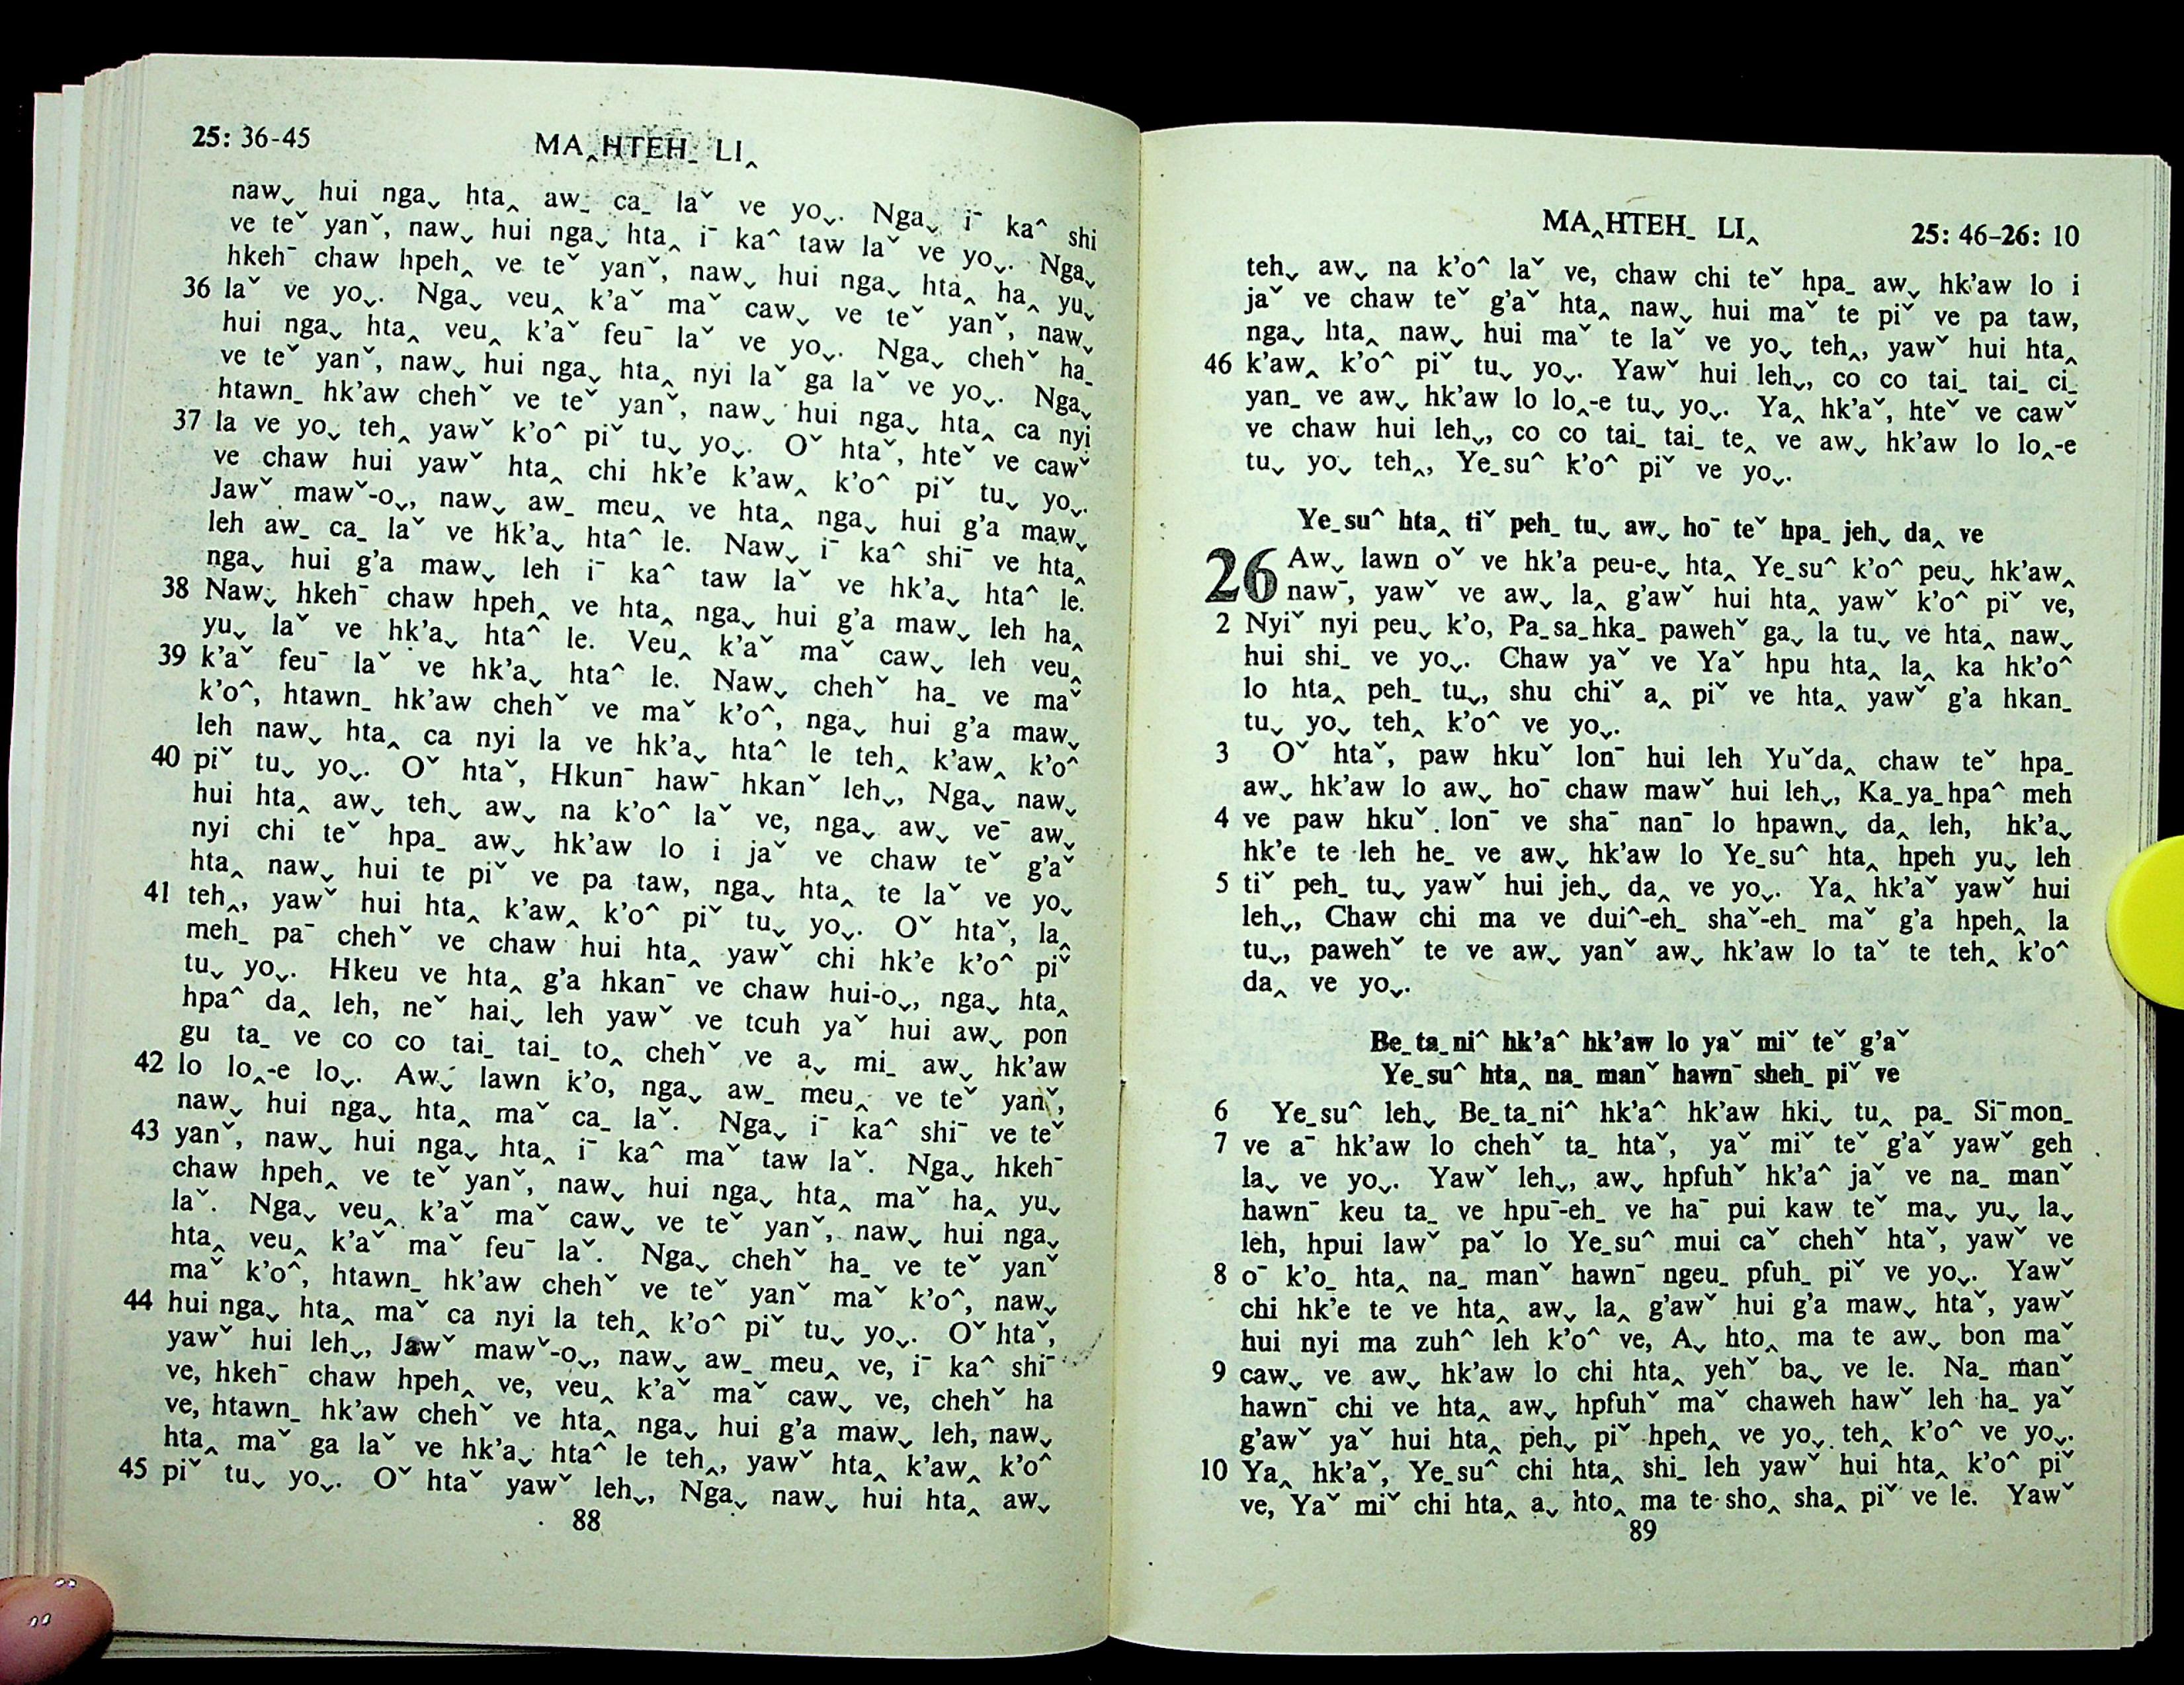 25: 36-45
MA‸HTEH˗ LI‸
naw⌄ hui nga⌄ hta‸ aw˗ ca˗ laˇ ve yo⌄. Nga⌄ i¯ ka^ shi
ve teˇ yanˇ, naw⌄ hui nga⌄ hta‸ i¯ ka^ taw laˇ ve yo⌄. Nga⌄
hkeh¯ chaw hpeh‸ ve teˇ yanˇ, naw⌄ hui nga⌄ hta‸ ha‸ yu⌄
36 laˇ ve yo⌄. Nga⌄ veu‸ k'aˇ maˇ caw⌄ ve teˇ yanˇ, naw⌄
hui nga⌄ hta‸ veu‸ k'aˇ feu¯ laˇ ve yo⌄. Nga⌄ chehˇ ha˗
ve teˇ yanˇ, naw⌄ hui nga⌄ hta‸ nyi laˇ ga laˇ ve yo⌄. Nga⌄
htawn˗ hk'aw chehˇ ve teˇ yanˇ, naw⌄ hui nga⌄ hta‸ ca nyi
37 la ve yo⌄ teh‸ yawˇ k'o^ piˇ tu⌄ yo⌄. Oˇ htaˇ, hteˇ ve cawˇ
ve chaw hui yawˇ hta‸ chi hk'e k'aw‸ k'o^ piˇ tu⌄ yo⌄.
Jawˇ mawˇ-o⌄, naw⌄ aw˗ meu‸ ve hta‸ nga⌄ hui g'a maw⌄
leh aw˗ ca˗ laˇ ve hk'a⌄ hta^ le. Naw⌄ i¯ ka^ shi¯ ve hta‸
nga⌄ hui g'a maw⌄ leh i¯ ka^ taw laˇ ve hk'a⌄ hta^ le.
38 Naw⌄ hkeh¯ chaw hpeh‸ ve hta‸ nga⌄ hui g'a maw⌄ leh ha‸
yu⌄ laˇ ve hk'a⌄ hta^ le. Veu‸ k'aˇ maˇ caw⌄ leh veu‸
39 k'aˇ feu¯ laˇ ve hk'a⌄ hta^ le. Naw⌄ chehˇ ha˗ ve maˇ
k'o^, htawn˗ hk'aw chehˇ ve maˇ k'o^, nga⌄ hui g'a maw⌄
leh naw⌄ hta‸ ca nyi la ve hk'a⌄ hta^ le teh‸ k'aw‸ k'o^
40 piˇ tu⌄ yo⌄. Oˇ htaˇ, Hkun¯ haw¯ hkanˇ leh⌄, Nga⌄ naw⌄
hui hta‸ aw⌄ teh⌄ aw⌄ na k'o^ laˇ ve, nga⌄ aw⌄ ve¯ aw⌄
nyi chi teˇ hpa˗ aw⌄ hk'aw lo i jaˇ ve chaw teˇ g'aˇ
hta‸ naw⌄ hui te piˇ ve pa taw, nga⌄ hta‸ te laˇ ve yo⌄
41 teh‸, yawˇ hui hta‸ k'aw‸ k'o^ piˇ tu⌄ yo⌄. Oˇ htaˇ, la‸
meh˗ pa¯ chehˇ ve chaw hui hta‸ yawˇ chi hk'e k'o^ piˇ
tu⌄ yo⌄. Hkeu ve hta‸ g'a hkan¯ ve chaw hui-o⌄, nga⌄ hta‸
hpa^ da‸ leh, neˇ hai⌄ leh yawˇ ve tcuh yaˇ hui aw⌄ pon
gu ta˗ ve co co tai˗ tai˗ to‸ chehˇ ve a⌄ mi˗ aw⌄ hk'aw
42 lo lo‸-e lo⌄. Aw⌄ lawn k'o, nga⌄ aw˗ meu‸ ve teˇ yanˇ,
naw⌄ hui nga⌄ hta‸ maˇ ca˗ laˇ. Nga⌄ i¯ ka^ shi¯ ve teˇ
43 yanˇ, naw⌄ hui nga⌄ hta‸ i¯ ka^ maˇ taw laˇ. Nga⌄ hkeh¯
chaw hpeh‸ ve teˇ yanˇ, naw⌄ hui nga⌄ hta‸ maˇ ha‸ yu⌄
laˇ. Nga⌄ veu‸ k'aˇ maˇ caw⌄ ve teˇ yanˇ, naw⌄ hui nga⌄
hta‸ veu‸ k'aˇ maˇ feu¯ laˇ. Nga⌄ chehˇ ha˗ ve teˇ yanˇ
maˇ k'o^, htawn˗ hk'aw chehˇ ve teˇ yanˇ maˇ k'o^, naw⌄
44 hui nga⌄ hta‸ maˇ ca nyi la teh‸ k'o^ piˇ tu⌄ yo⌄. Oˇ htaˇ,
yawˇ hui leh⌄, Jawˇ mawˇ-o⌄, naw⌄ aw˗ meu‸ ve, i¯ ka^ shi¯
ve, hkeh¯ chaw hpeh‸ ve, veu‸ k'aˇ maˇ caw⌄ ve, chehˇ ha
ve, htawn˗ hk'aw chehˇ ve hta‸ nga⌄ hui g'a maw⌄ leh, naw⌄
hta‸ maˇ ga laˇ ve hk'a⌄ hta^ le teh‸, yawˇ hta‸ k'aw‸ k'o^
45 piˇ tu⌄ yo⌄. Oˇ htaˇ yawˇ leh⌄, Nga⌄ naw⌄ hui hta‸ aw⌄
88
MA‸HTEH˗ LI‸
25: 46-26: 10
teh⌄ aw⌄ na k'o^ laˇ ve, chaw chi teˇ hpa˗ aw⌄ hk'aw lo i
jaˇ ve chaw teˇ g'aˇ hta‸ naw⌄ hui maˇ te piˇ ve pa taw,
nga⌄ hta‸ naw⌄ hui maˇ te laˇ ve yo⌄ teh‸, yawˇ hui hta‸
46 k'aw‸ k'o^ piˇ tu⌄ yo⌄. Yawˇ hui leh⌄, co co tai˗ tai˗ ci˗
yan˗ ve aw⌄ hk'aw lo lo‸-e tu⌄ yo⌄. Ya‸ hk'aˇ, hteˇ ve cawˇ
ve chaw hui leh⌄, co co tai˗ tai˗ te‸ ve aw⌄ hk'aw lo lo‸-e
tu⌄ yo⌄ teh‸, Ye˗su^ k'o^ piˇ ve yo⌄.
Ye˗su^ hta‸ tiˇ peh˗ tu⌄ aw⌄ ho¯ teˇ hpa˗ jeh⌄ da‸ ve
26 Aw⌄ lawn oˇ ve hk'a peu-e⌄ hta‸ Ye˗su^ k'o^ peu⌄ hk'aw‸
naw¯, yawˇ ve aw⌄ la‸ g'awˇ hui hta‸ yawˇ k'o^ piˇ ve,
2 Nyiˇ nyi peu⌄ k'o, Pa˗sa˗hka˗ pawehˇ ga⌄ la tu⌄ ve hta‸ naw⌄
hui shi˗ ve yo⌄. Chaw yaˇ ve Yaˇ hpu hta‸ la‸ ka hk'o^
lo hta‸ peh˗ tu⌄, shu chiˇ a‸ piˇ ve hta‸ yawˇ g'a hkan˗
tu⌄ yo⌄ teh‸ k'o^ ve yo⌄.
3 Oˇ htaˇ, paw hkuˇ lon¯ hui leh Yuˇda‸ chaw teˇ hpa˗
aw⌄ hk'aw lo aw⌄ ho¯ chaw mawˇ hui leh⌄, Ka˗ya˗hpa^ meh
4 ve paw hkuˇ lon¯ ve sha¯ nan¯ lo hpawn⌄ da‸ leh, hk'a⌄
hk'e te leh he˗ ve aw⌄ hk'aw lo Ye˗su^ hta‸ hpeh yu⌄ leh
5 tiˇ peh˗ tu⌄ yawˇ hui jeh⌄ da‸ ve yo⌄. Ya‸ hk'aˇ yawˇ hui
leh⌄, Chaw chi ma ve dui^-eh˗ shaˇ-eh˗ maˇ g'a hpeh‸ la
tu⌄, pawehˇ te ve aw⌄ yanˇ aw⌄ hk'aw lo taˇ te teh‸ k'o^
da‸ ve yo⌄.
Be˗ta˗ni^ hk'a^ hk'aw lo yaˇ miˇ teˇ g'aˇ
Ye˗su^ hta‸ na˗ manˇ hawn¯ sheh˗ piˇ ve
6 Ye˗su^ leh⌄ Be˗ta˗ni^ hk'a^ hk'aw hki⌄ tu‸ pa˗ Si¯mon˗
7 ve a¯ hk'aw lo chehˇ ta˗ htaˇ, yaˇ miˇ teˇ g'aˇ yawˇ geh
la⌄ ve yo⌄. Yawˇ leh⌄, aw⌄ hpfuhˇ hk'a^ jaˇ ve na˗ manˇ
hawn¯ keu ta˗ ve hpu¯-eh˗ ve ha¯ pui kaw teˇ ma⌄ yu⌄ la⌄
leh, hpui lawˇ paˇ lo Ye˗su^ mui caˇ chehˇ htaˇ, yawˇ ve
8 o¯ k'o˗ hta‸ na˗ manˇ hawn¯ ngeu˗ pfuh˗ piˇ ve yo⌄. Yawˇ
chi hk'e te ve hta‸ aw⌄ la‸ g'awˇ hui g'a maw⌄ htaˇ, yawˇ
hui nyi ma zuh^ leh k'o^ ve, A⌄ hto‸ ma te aw⌄ bon maˇ
9 caw⌄ ve aw⌄ hk'aw lo chi hta‸ yehˇ ba⌄ ve le. Na˗ manˇ
hawn¯ chi ve hta‸ aw⌄ hpfuhˇ maˇ chaweh hawˇ leh ha˗ yaˇ
g'awˇ yaˇ hui hta‸ peh⌄ piˇ hpeh‸ ve yo⌄ teh‸ k'o^ ve yo⌄.
10 Ya‸ hk'aˇ, Ye˗su^ chi hta‸ shi˗ leh yawˇ hui hta‸ k'o^ piˇ
ve, Yaˇ miˇ chi hta‸ a⌄ hto‸ ma te sho‸ sha‸ piˇ ve le. Yawˇ
89